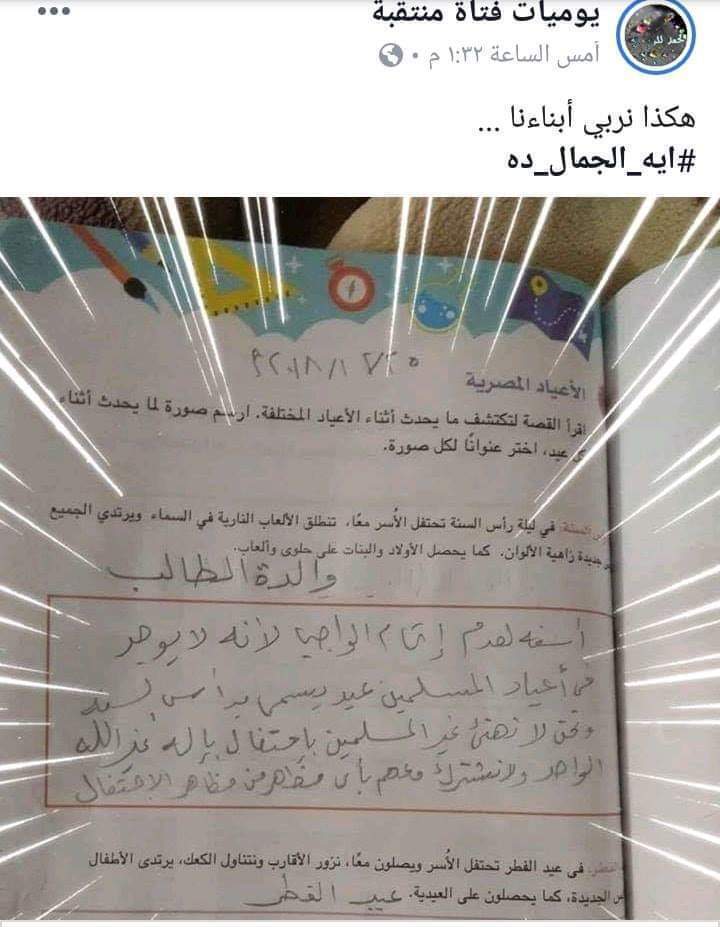 يوميات فتاة منتقبة
أمس الساعة ١:٣٢ م
هكذا نربي أبناءنا ...
#ايه_الجمال_ده
الأعياد المصرية
اقرأ القصة لتكتشف ما يحدث أثناء الأعياد المختلفة. ارسم صورة لما يحدث أثناء
كل عيد، اختر عنوانًا لكل صورة.
السنة: في ليلة رأس السنة تحتفل الأسر معًا، تنطلق الألعاب النارية في السماء ويرتدي الجميع
جديدة زاهية الألوان. كما يحصل الأولاد والبنات على حلوى وألعاب.
والدة الطالب
أسفه لعدم إتمام الواجب لأنه لا يوجد
في أعياد المسلمين عيد يسمى برأس السنه
ونحن لا نهنئ غير المسلمين بإحتفال بإله غير الله
الواحد ولا نشترك معهم بأى مظاهر من مظاهر الاحتفال
الفطر: فى عيد الفطر تحتفل الأسر ويصلون معًا، نزور الأقارب ونتناول الكعك، يرتدى الأطفال
الجديدة، كما يحصلون على العيدية.
عيد الفطر